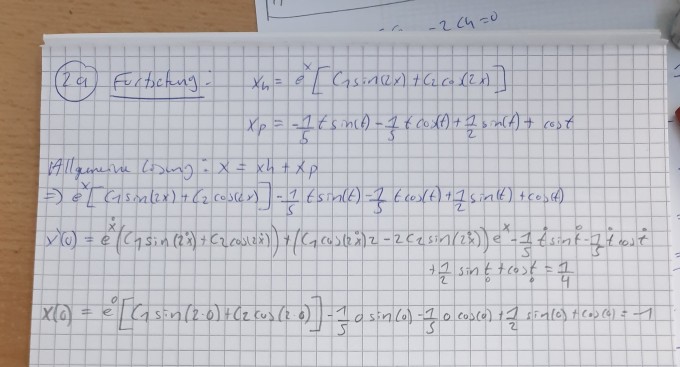 -2C4=0
2a Fortsetzung: xh = e^x [C1 sin(2x) + C2 cos(2x)]
xp = -1/5 t sin(t) - 1/5 t cos(t) + 1/2 sin(t) + cos t
Allgemeine Lösung: x = xh + xp
=> e^x [C1 sin(2x) + C2 cos(2x)] - 1/5 t sin(t) - 1/5 t cos(t) + 1/2 sin(t) + cos(t)
x'(0) = e^x (C1 sin(2x) + C2 cos(2x)) + (C1 cos(2x) 2 - 2 C2 sin(2x)) e^x - 1/5 t sin t - 1/5 t cos t
+ 1/2 sin t + cos t = 1/4
x(0) = e^0 [C1 sin(2·0) + C2 cos(2·0)] - 1/5 0 sin(0) - 1/5 0 cos(0) + 1/2 sin(0) + cos(0) = -1